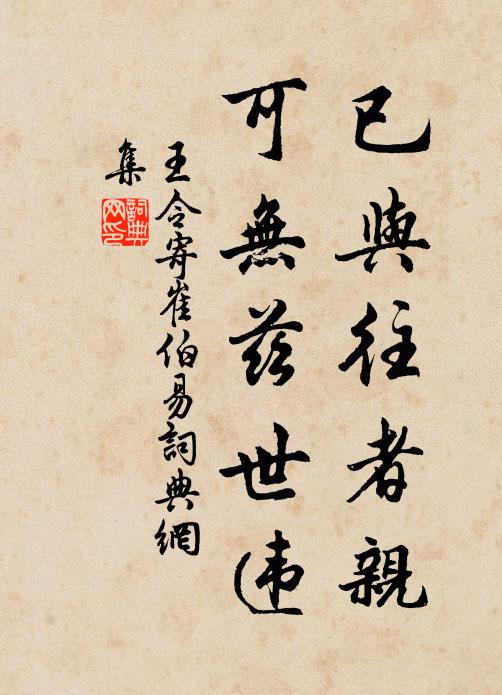 已與往者親
可無茲世违
王令寄崔伯易詞典網
集
詞典网印